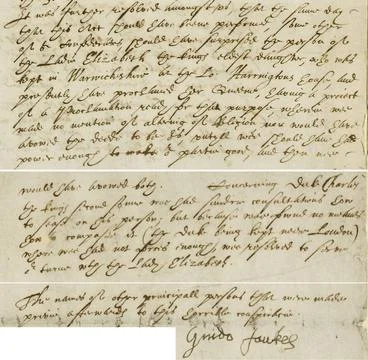 It was further resolved amongst us, that the same day
that this Act should have bene performed some other
of our Confederates should have surprised the person of
the Lady Elizabeth the kings eldest daughter, who was
kept in Warwickshire at the Lo: Harringtons house, and
presently have proclaimed her Queene, having a project
of a Proclamation ready for that purpose wherein we
made no mention of altering of Religion nor would have
avowed the deede to be ours, untill we should have had
power enough to make our partie good, and then we
would have avowed both. Concerning Duke Charles
the kings second sonne we had sundrie consultations how
to sease on his person, but because we found no meanes
how to compasse it (the Duke being kept neere London)
where we had not forces enough, we resolved to serve
our turne with the Lady Elizabeth.
The names of other principall persons that were made
privie afterwards to this horrible conspiracie.
Guido Faukes